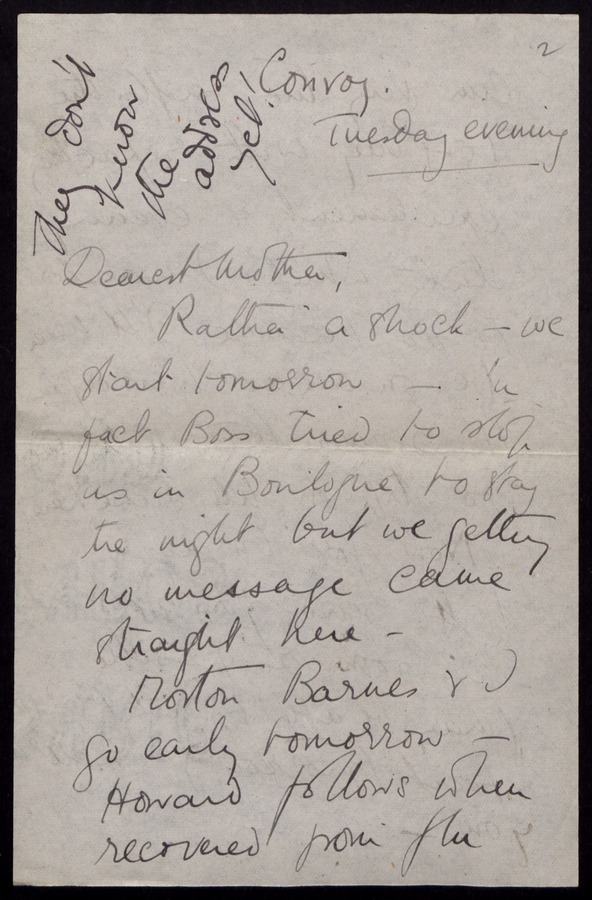 2
They don't
know
the
address
yet!
Convoy.
Tuesday evening
Dearest Mother,
Rather a shock – we
start tomorrow – in
fact Boss tried to stop
us in Boulogne to stay
the night but we getting
no message came
straight here –
Norton Barnes & I
go early tomorrow –
Howard follows when
recovered from flu